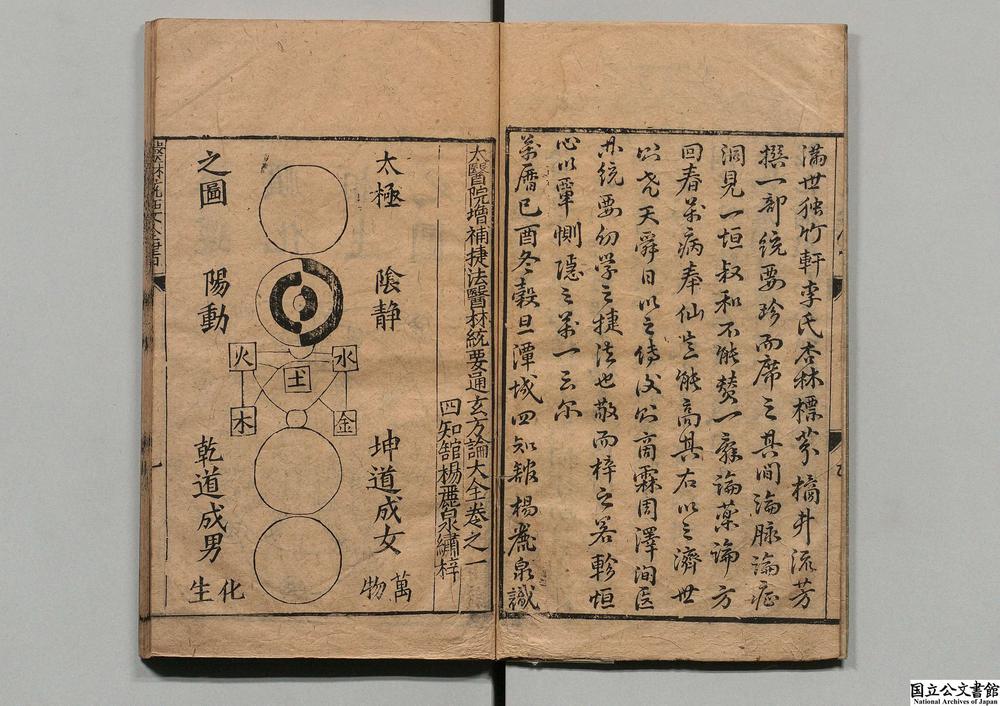 滿世独竹軒李氏杏林標芬橘井流芳
撰一部統要珍而席之其间論脉論症
洞見一垣叔和不能赞一辞論薬論方
回春萬病奉仙豈能高其右以之濟世
以尧天舜日以之傳後則商霖周澤洵医
林統要幼学之捷法也敬而梓之
心以覃惻隱之萬一云尔
萬曆己酉冬穀旦潭城四知舘楊麗泉識
太醫院增補捷法醫林統要通玄方論大全卷之一
四知舘楊麗泉繡梓
太極
之圖
陰靜
陽動
水
火
土
金
木
坤道成女
乾道成男
萬物
化生
国立公文書館
National Archives of Japan